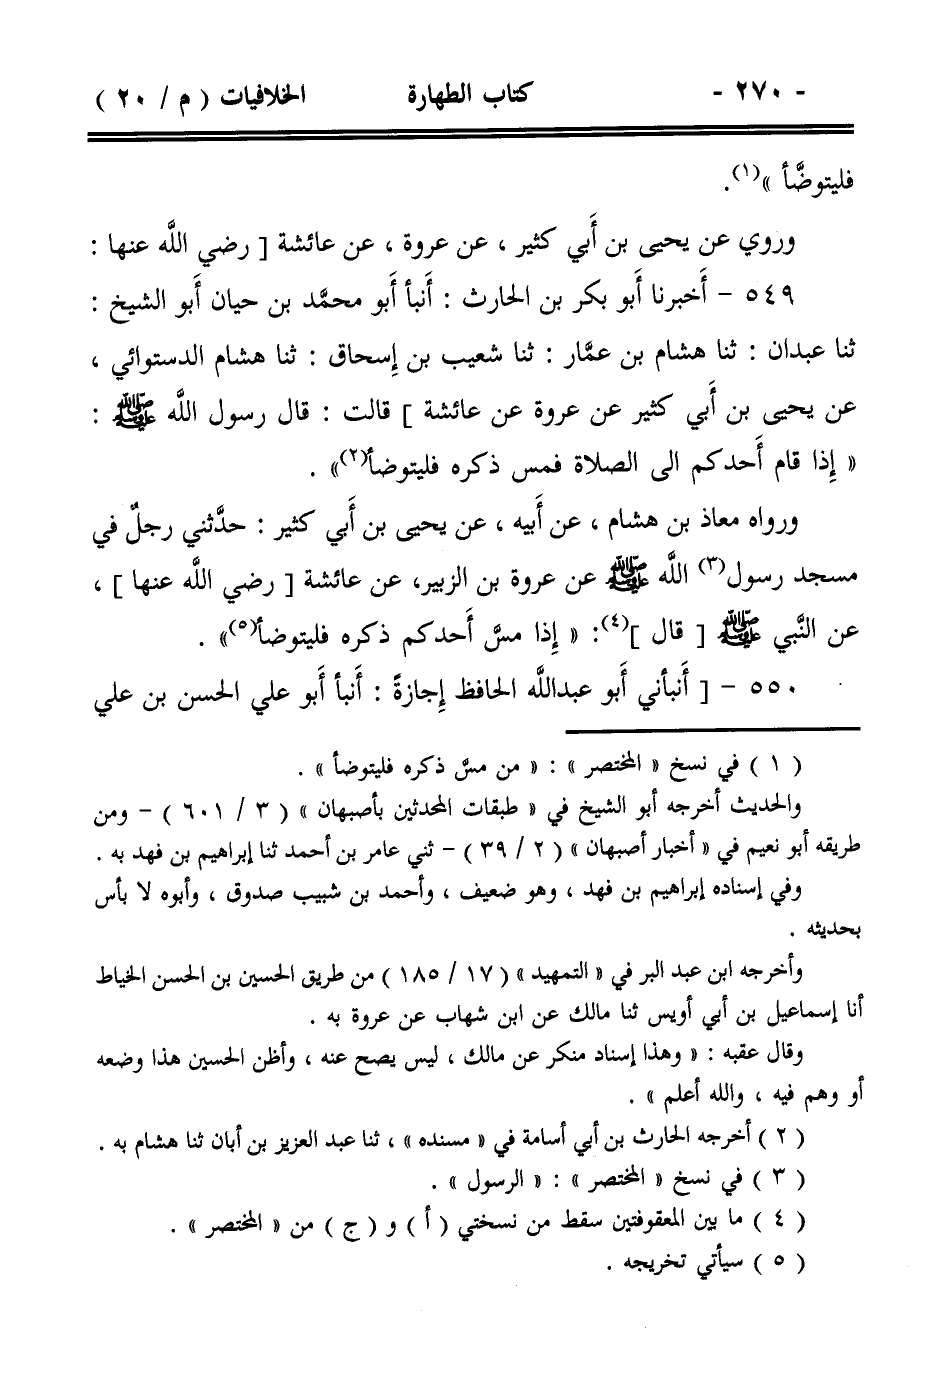 - ٢٧٠ - كتاب الطهارة الخلافيات ( م / ٢٠ )
فليتوضَّأ »(١).
وروي عن يحيى بن أَبي كثير ، عن عروة ، عن عائشة [ رضي اللَّه عنها :
٥٤٩ - أَخبرنا أَبو بكر بن الحارث : أَنبأ أَبو محمَّد بن حيان أَبو الشيخ :
ثنا عبدان : ثنا هشام بن عمَّار : ثنا شعيب بن إِسحاق : ثنا هشام الدستوائي ،
عن يحيى بن أَبي كثير عن عروة عن عائشة ] قالت : قال رسول اللَّه ﷺ :
« إِذا قام أَحدكم الى الصلاة فمس ذكره فليتوضأ(٢)» .
ورواه معاذ بن هشام ، عن أَبيه ، عن يحيى بن أَبي كثير : حدَّثني رجلٌ في
مسجد رسول(٣) اللَّه ﷺ عن عروة بن الزبير، عن عائشة [ رضي اللَّه عنها ] ،
عن النَّبي ﷺ [ قال ](٤): « إِذا مسَّ أَحدكم ذكره فليتوضأ(٥)» .
٥٥٠ - [ أَنبأني أَبو عبداللَّه الحافظ إِجازةً : أَنبأ أَبو علي الحسن بن علي
( ١ ) في نسخ « المختصر » : « من مسَّ ذكره فليتوضأ » .
والحديث أخرجه أبو الشيخ في « طبقات المحدثين بأصبهان » ( ٣ / ٦٠١ ) - ومن
طريقه أبو نعيم في « أخبار أصبهان » ( ٢ / ٣٩ ) - ثني عامر بن أحمد ثنا إبراهيم بن فهد به .
وفي إسناده إبراهيم بن فهد ، وهو ضعيف ، وأحمد بن شبيب صدوق ، وأبوه لا بأس
بحديثه .
وأخرجه ابن عبد البر في « التمهيد » ( ١٧ / ١٨٥ ) من طريق الحسين بن الحسن الخياط
أنا إسماعيل بن أبي أويس ثنا مالك عن ابن شهاب عن عروة به .
وقال عقبه : « وهذا إسناد منكر عن مالك ، ليس يصح عنه ، وأظن الحسين هذا وضعه
أو وهم فيه ، والله أعلم » .
( ٢ ) أخرجه الحارث بن أبي أسامة في « مسنده » ، ثنا عبد العزيز بن أبان ثنا هشام به .
( ٣ ) في نسخ « المختصر » : « الرسول » .
( ٤ ) ما بين المعقوفتين سقط من نسختي ( أ ) و ( ج ) من « المختصر » .
( ٥ ) سيأتي تخريجه .